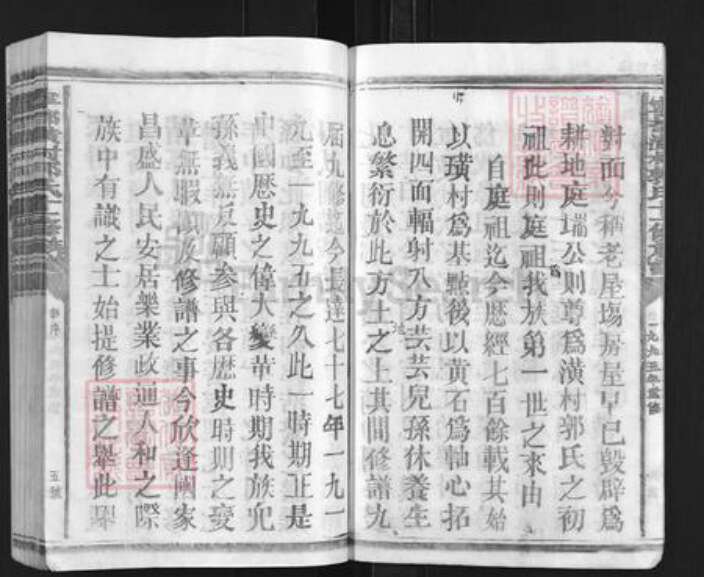 對面今稱老屋塲房屋早已毀辟爲
耕地庭瑞公則尊爲潢村郭氏之初
祖此則庭祖我族第一世之來由
自庭祖迄今歷經七百餘載其始
以璜村爲基點後以黄石爲軸心拓
開四面輻射八方芸芸兒孫休養生
息繁衍於此方土之上其間修譜九
届九修迄今長達七十七年一九一
九至一九九五之久此一時期正是
中國歷史之偉大變革時期我族兒
孫義無反顧參與各歷史時期之變
革無暇顧及修譜之事今欣逢國家
昌盛人民安居樂業政通人和之際
族中有識之士始提修譜之舉此舉
一九九五年
五號